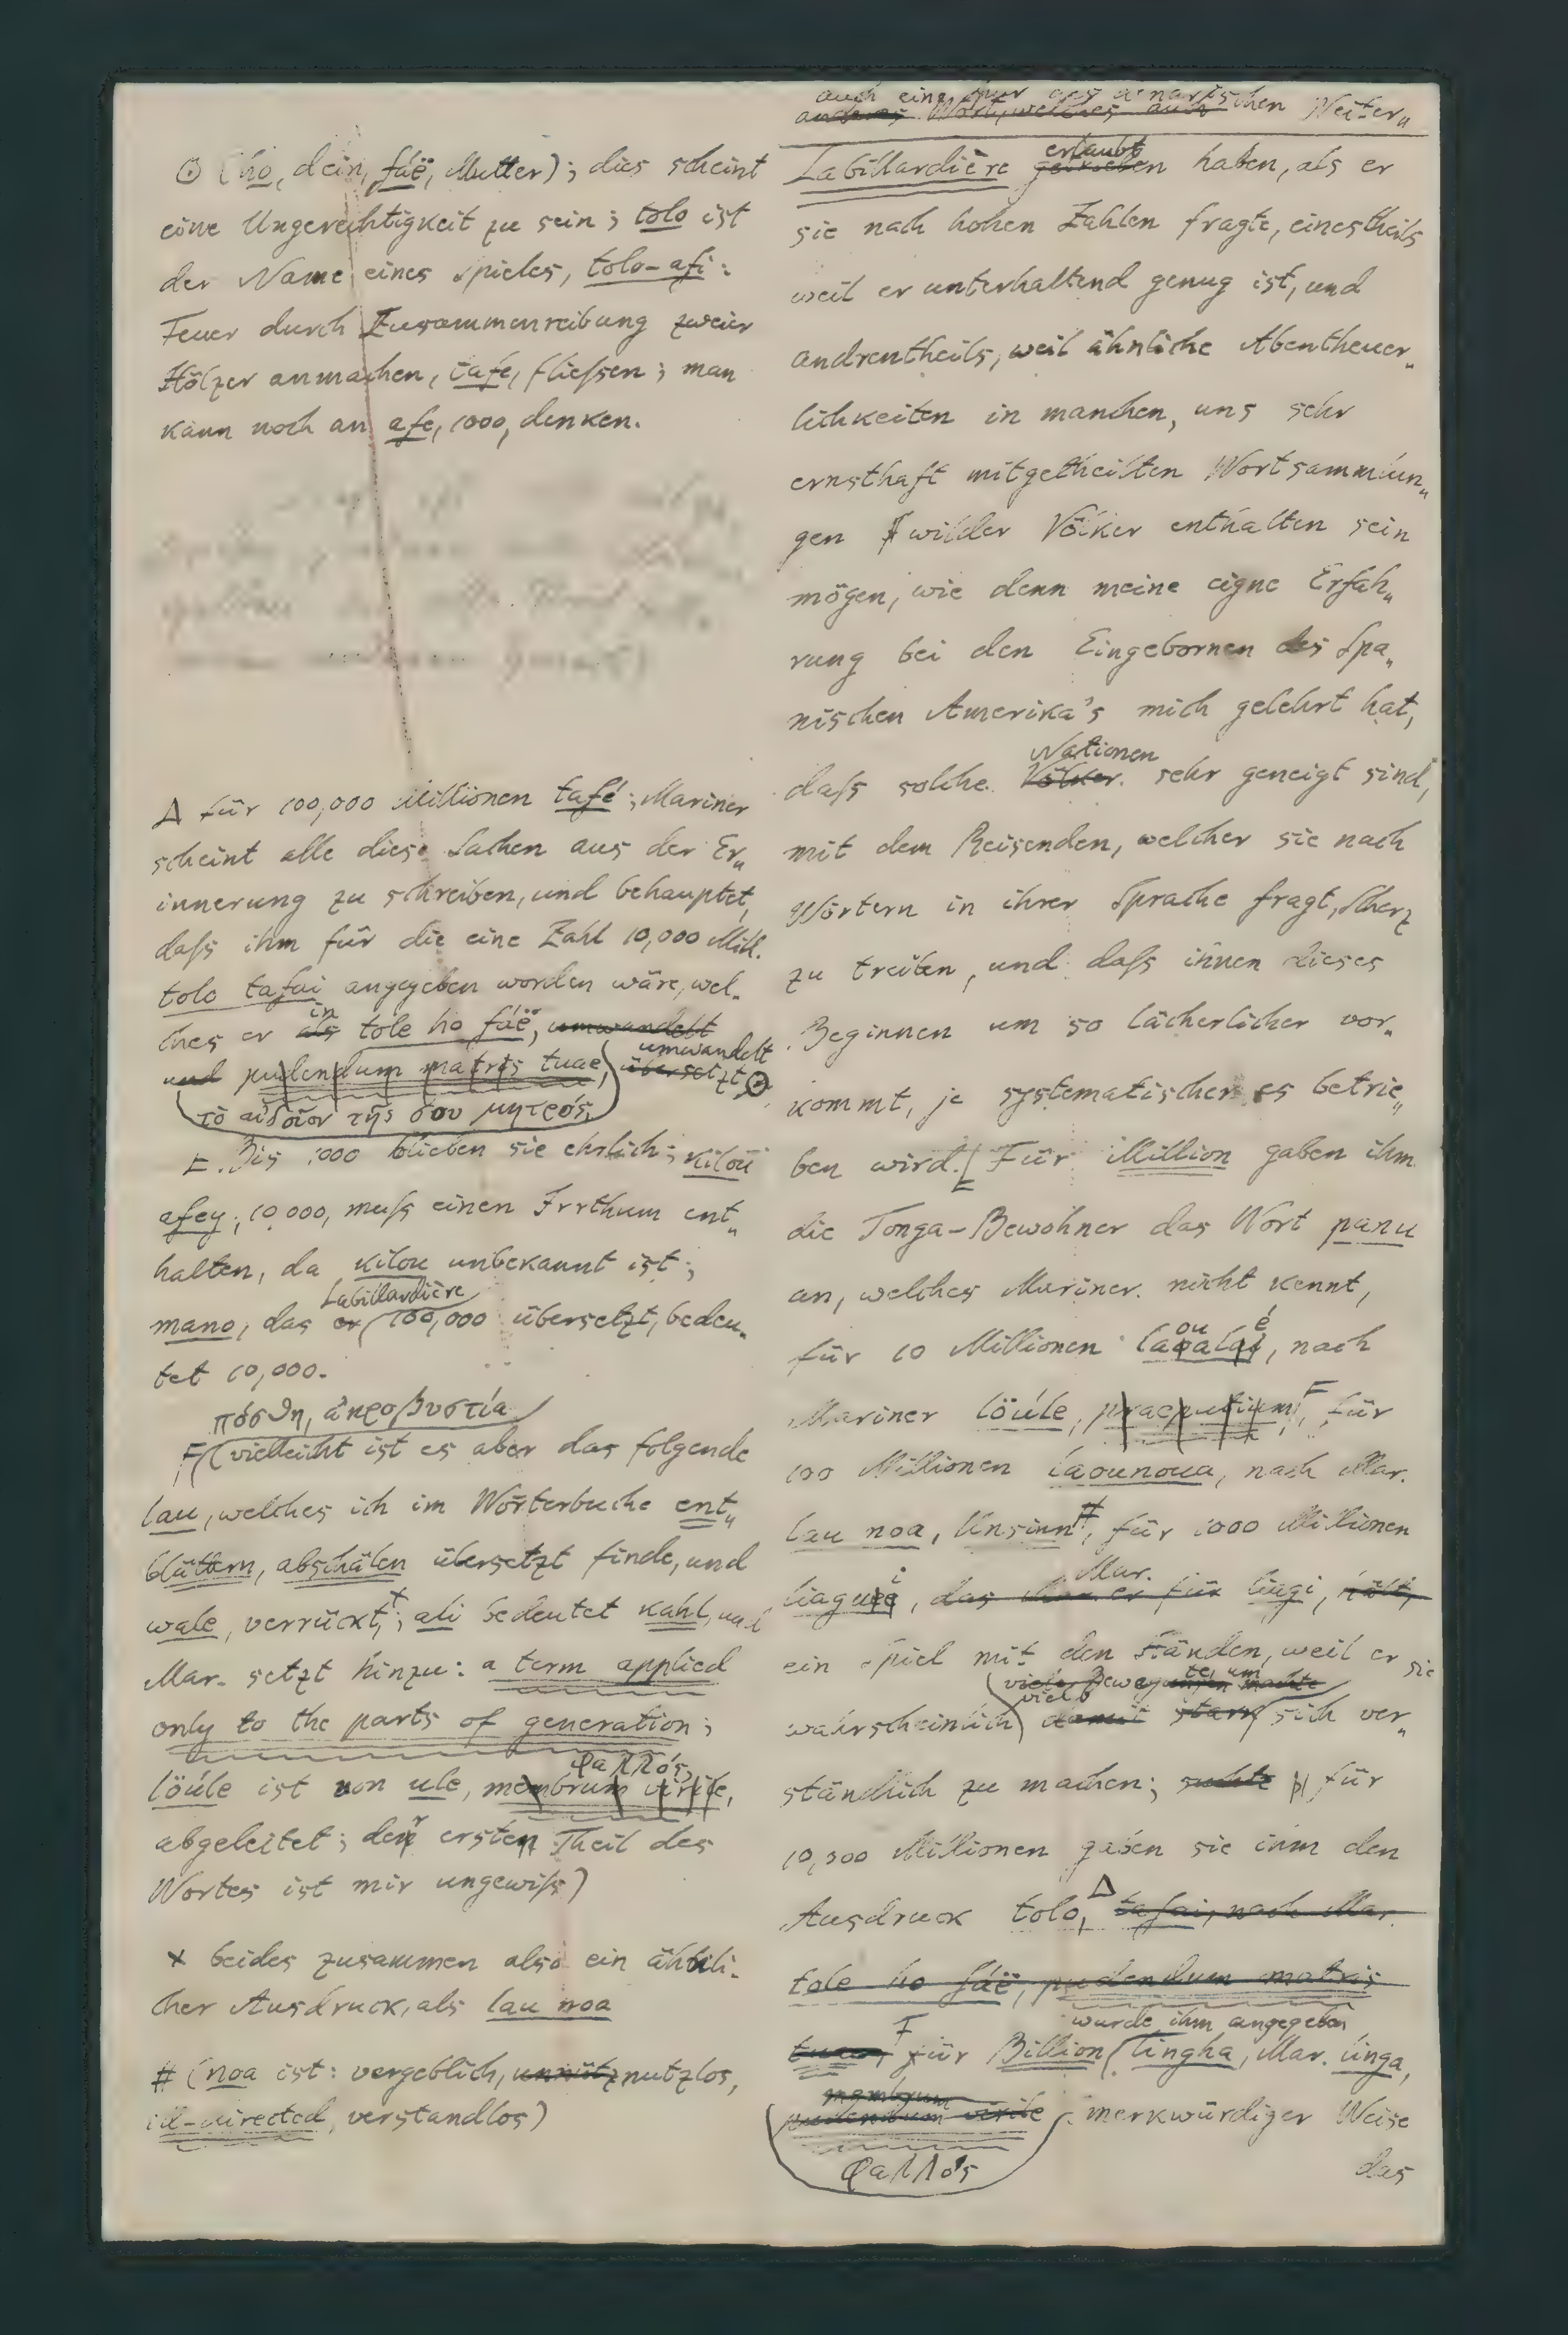 ⊙ (ho, dein, fáë, Mutter); dies scheint
eine Ungerechtigkeit zu sein; tolo ist
der Name eines Spieles, tolo-afi:
Feuer durch Zusammenreibung zweier
Hölzer anmachen, tafe, fließen; man
kann noch an afe, 1000, denken.
Δ für 100,000 Millionen tafé; Mariner
scheint alle diese Sachen aus der Er„
innerung zu schreiben, und behauptet,
daß ihm für die eine Zahl 10,000 Mill.
tolo tafai angegeben worden wäre, wel„
in
ches er als tole ho fáë, umwandelt
umwandelt
und pudendum matris tuae, übersetzt ⊙
τὸ αἰδοῖον τῆς σου μητρός,
E. Bis 1000 blieben sie ehrlich; kilou
afey, 10,000, muß einen Irrthum ent„
halten, da kilou unbekannt ist;
Labillardière
mano, das er 100,000 übersetzt, bedeu„
tet 10,000.
πόσθη, ἀκροβυστία
F (vielleicht ist es aber das folgende
lau, welches ich im Wörterbuche ent„
blättern, abschälen übersetzt finde, und
wale, verrückt,+; ali bedeutet kahl, und
Mar. setzt hinzu: a term applied
only to the parts of generation;
φαλλός,
löúle ist von ule, membrum virile,
abgeleitet; der ersten Theil des
Wortes ist mir ungewiß)
× beides zusammen also ein ähnli„
cher Ausdruck, als lau noa
# (noa ist: vergeblich, unnütz nutzlos,
ill-directed, verstandlos)
auch eine
anderes Wort, welches auch chen Neiter„
erlaubt
Labillardière getrieben haben, als er
sie nach hohen Zahlen fragte, einestheils
weil er unterhaltend genug ist, und
andrentheils, weil ähnliche Abentheuer„
lichkeiten in manchen, uns sehr
ernsthaft mitgetheilten Wortsammlun„
gen wilder Völker enthalten sein
mögen, wie denn meine eigne Erfah„
rung bei den Eingebornen des Spa„
nischen Amerika's mich gelehrt hat,
Nationen
daß solche Völker sehr geneigt sind,
mit dem Reisenden, welcher sie nach
Wörtern in ihrer Sprache fragt, Scherz
zu treiben, und daß ihnen dieses
Beginnen um so lächerlicher vor„
kommt, je systematischer es betrie„
ben wird. E Für Million gaben ihm
die Tonga-Bewohner das Wort panu
an, welches Mariner nicht kennt,
ou é
für 10 Millionen laoalai, nach
Mariner löúle, praeputium, F für
100 Millionen laounoua, nach Mar.
lau noa, Unsinn #, für 1000 Millionen
i Mar.
liaguee, das er für liagi, hält,
ein Spiel mit den Händen, weil er sie
viele Bewegungen te um machte
viel
wahrscheinlich damit stark sich ver„
ständlich zu machen; suchte für
10,000 Millionen gaben sie ihm den
Ausdruck tolo, Δ tafai, nach Mar.
tole ho fáë, pudendum matris
wurde ihm angegeben
tuae, F für Billion (lingha, Mar. linga,
membrum
pudendum virile merkwürdiger Weise
φαλλός
das